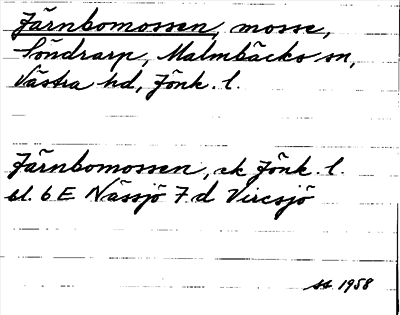 Järnbomossen, mosse,
Söndrarp, Malmbäcks sn,
Västra hd, Jönk. l.
Järnbomossen, ek Jönk. l.
bl. 6 E Nässjö 7 d Vircsjö
ss 1958